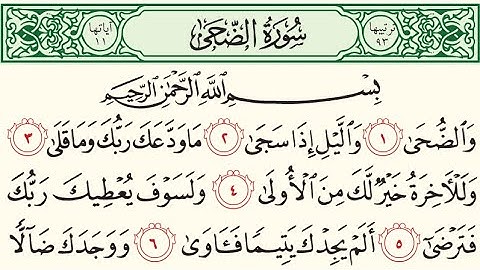 ترتيبها ٩٣ سُورَةُ الضُّحَىٰ آياتها ١١
بِسْمِ ٱللَّهِ ٱلرَّحْمَٰنِ ٱلرَّحِيمِ
وَٱلضُّحَىٰ ١ وَٱلَّيْلِ إِذَا سَجَىٰ ٢ مَا وَدَّعَكَ رَبُّكَ وَمَا قَلَىٰ ٣
وَلَلْأَخِرَةُ خَيْرٌ لَّكَ مِنَ ٱلْأُولَىٰ ٤ وَلَسَوْفَ يُعْطِيكَ رَبُّكَ
فَتَرْضَىٰ ٥ أَلَمْ يَجِدْكَ يَتِيمًا فَـَٔاوَىٰ ٦ وَوَجَدَكَ ضَآلًّا